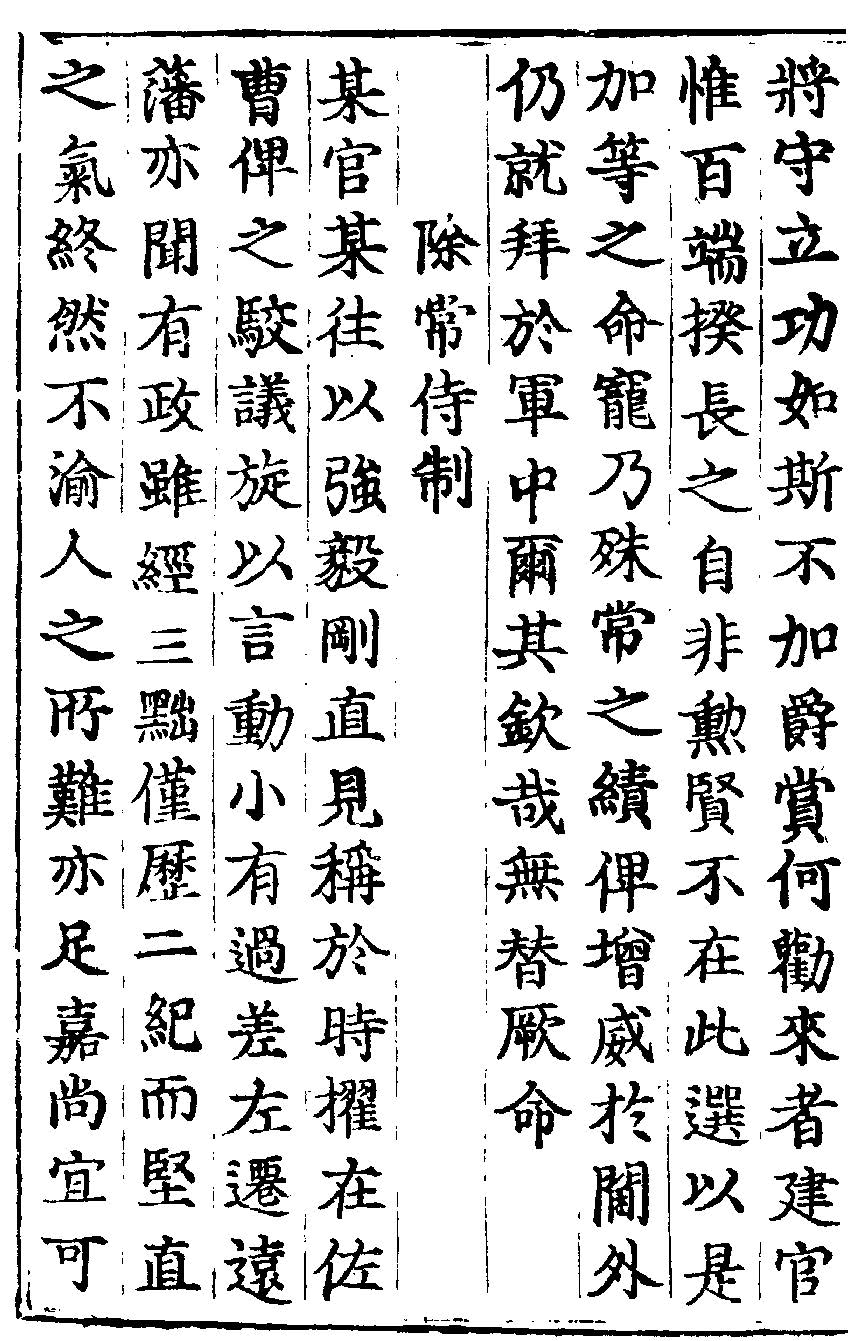 將守立功如斯不加爵賞何勸來者建官
惟百端揆長之自非勳賢不在此選以是
加等之命寵乃殊常之績俾增威於閫外
仍就拜於軍中爾其欽哉無替厥命
除常侍制
某官某往以強毅剛直見稱於時擢在佐
曹俾之駮議旋以言動小有過差左遷遠
藩亦聞有政雖經三黜僅歷二紀而堅直
之氣終然不渝人之所難亦足嘉尚宜可